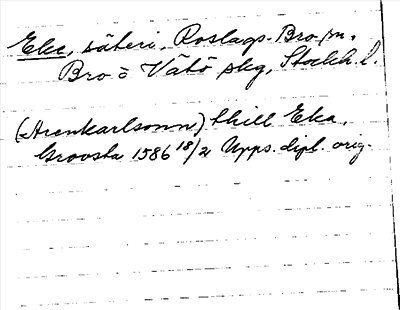 Eka, säteri, Roslags-Bro sn,
Bro o Vätö skg, Stockh. l.
(Arenkarlsonn) thill Eka,
Groosta 1586 18/2 Upps. dipl. orig.